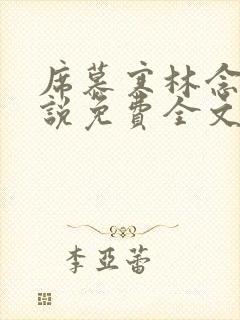 席慕寒林念
說免費全文
李亞蕾